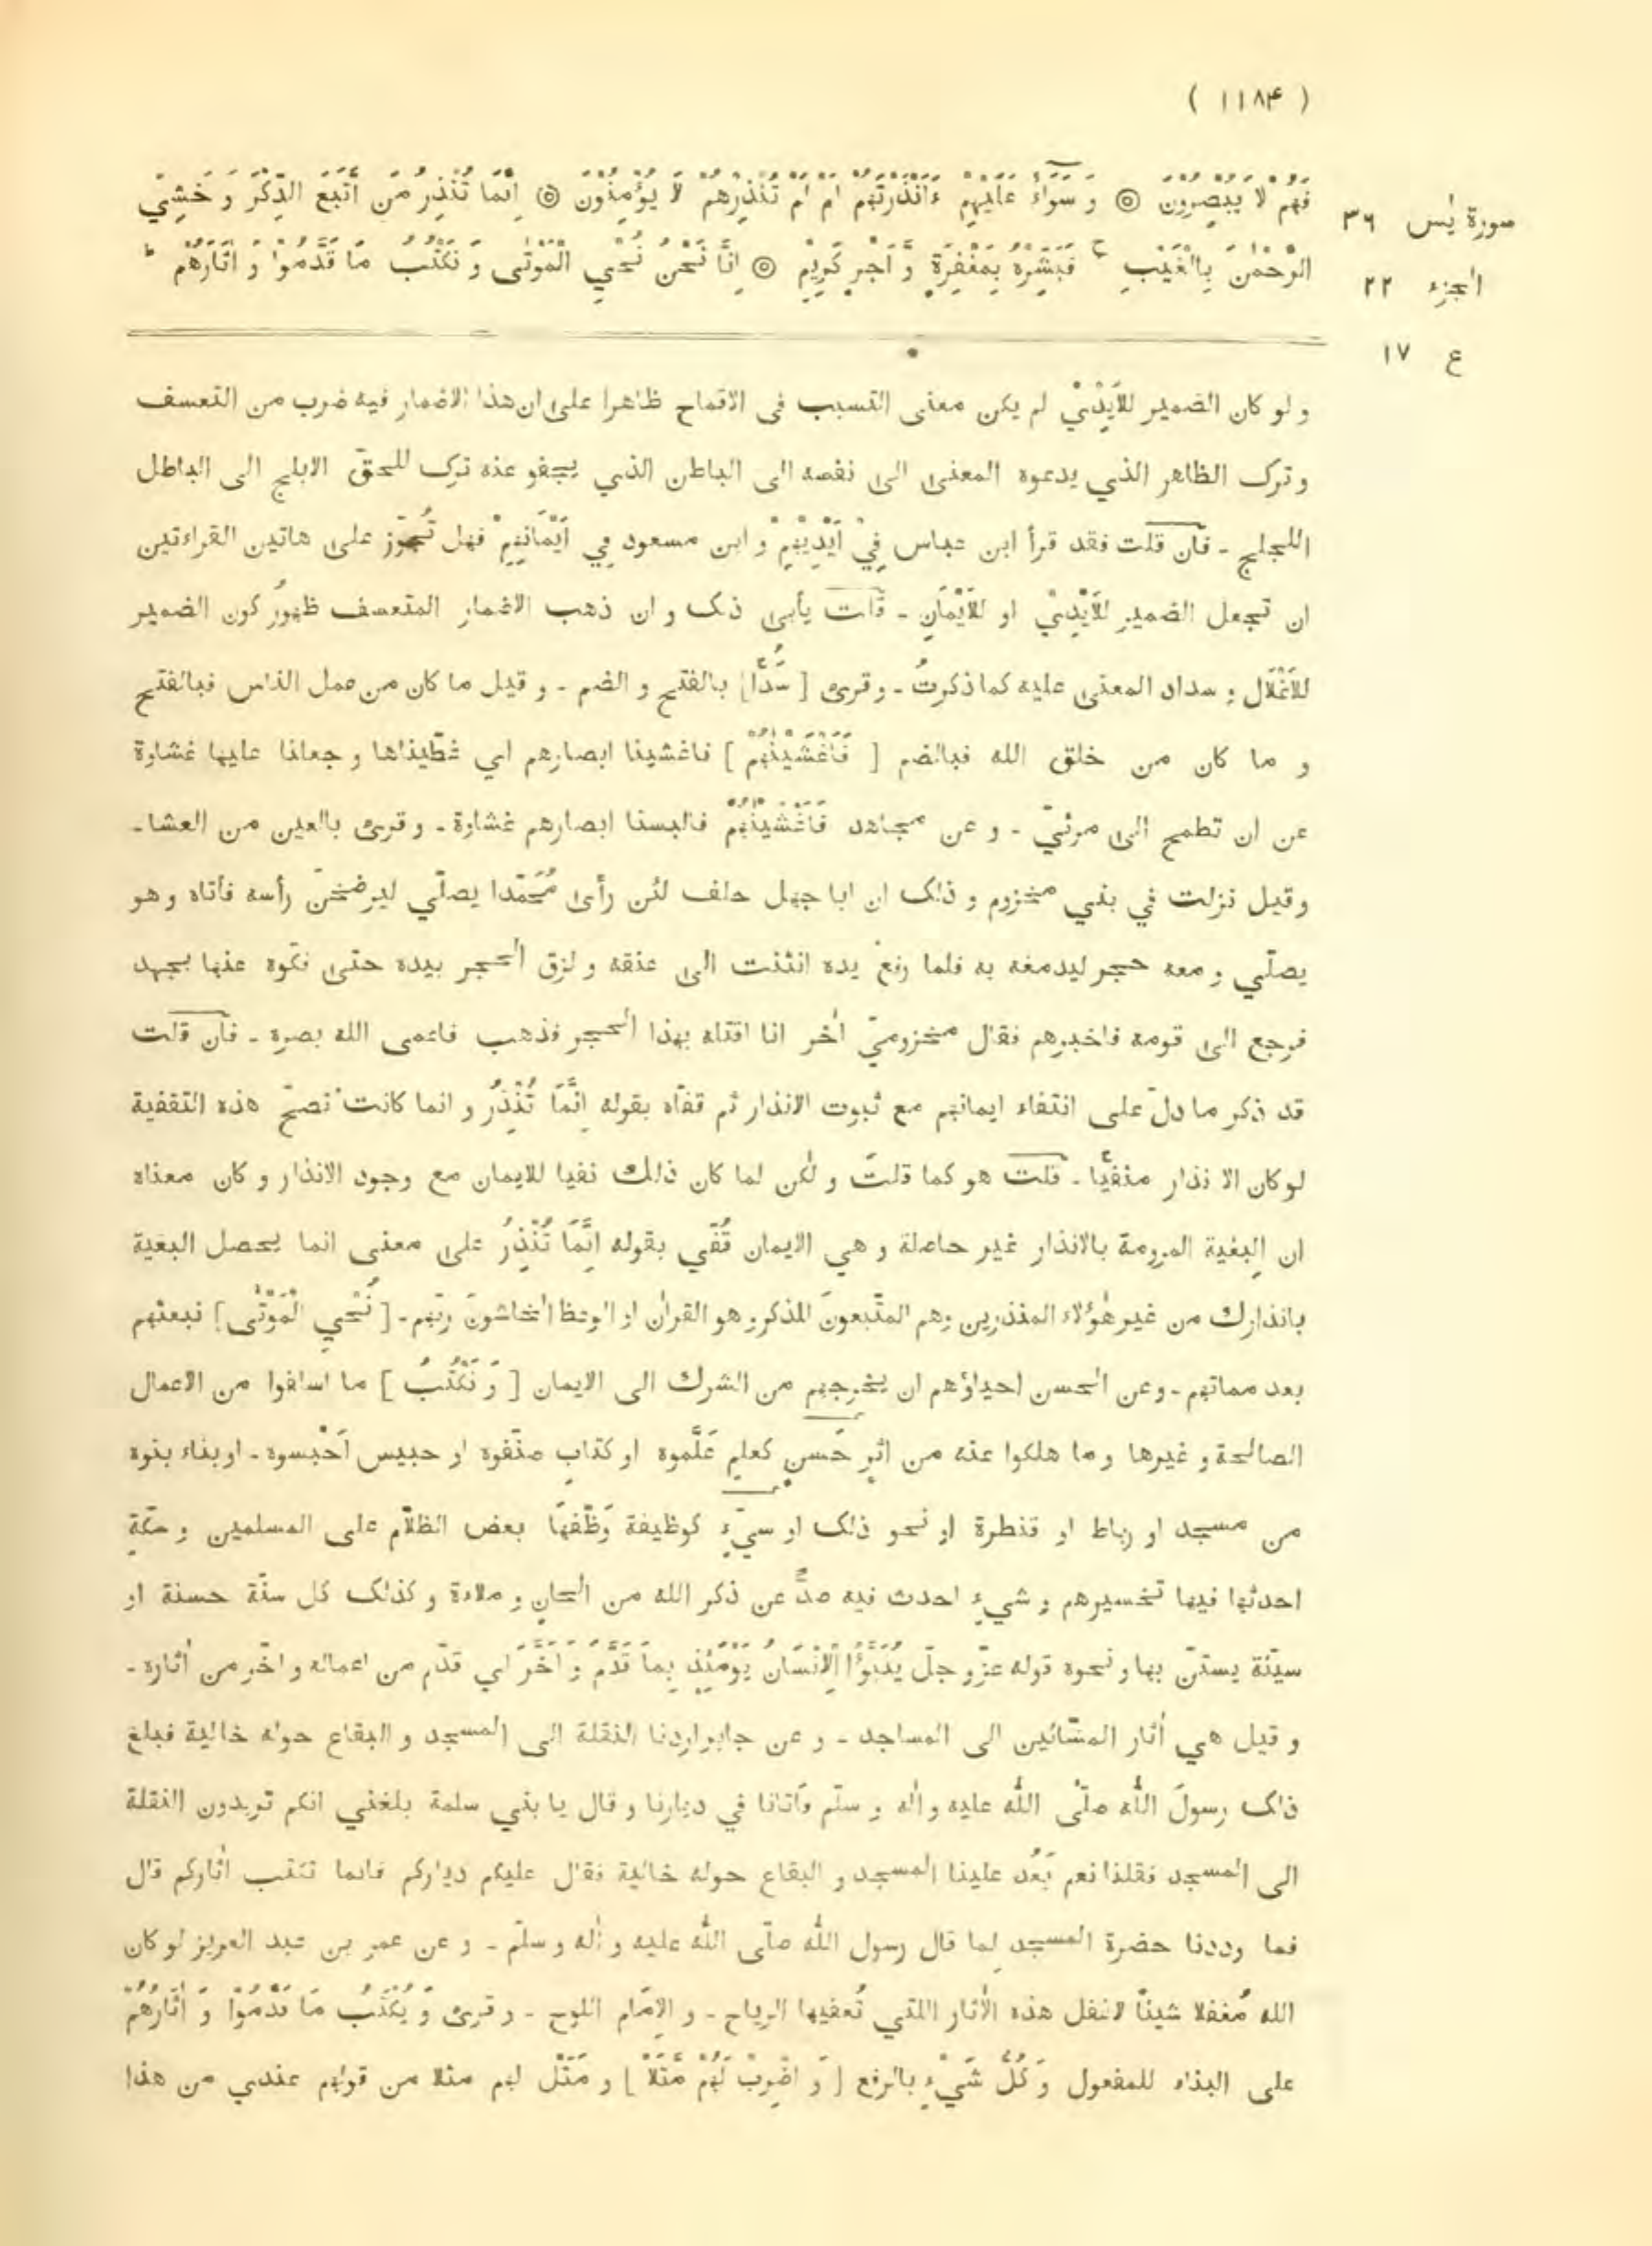 ( ١١٨۴ )
فَهُمْ لَا يُبْصِرُونَ ۞ وَ سَوَآءٌ عَلَيْهِمْ ءَاَنْذَرْتَهُمْ اَمْ لَمْ تُنْذِرْهُمْ لَا يُؤْمِنُوْنَ ۞ اِنَّمَا تُنْذِرُ مَنِ اتَّبَعَ الذِّكْرَ وَ خَشِيَ
سورة يٰس ٣٦
الرَّحْمٰنَ بِالْغَيْبِ ج فَبَشِّرْهُ بِمَغْفِرَةٍ وَّ اَجْرٍ كَرِيْمٍ ۞ اِنَّا نَحْنُ نُحْيِ الْمَوْتٰى وَ نَكْتُبُ مَا قَدَّمُوْا وَ اٰثَارَهُمْ ط
الجزء ٢٢
ع ١٧
و لو كان الضمير للاَيْدِيْ لم يكن معنى التسبب فى الاقماح ظاهرا على ان هذا الاضمار فيه ضرب من التعسف
و ترك الظاهر الذي يدعوه المعنى الى نفسه الى الباطن الذي يجفو عنه ترك للحقّ الابلج الى الباطل
اللجلج ـ فان قلت فقد قرأ ابن عباس فِيْ اَيْدِيْهِمْ و ابن مسعود فِي اَيْمَانِهِمْ فهل تُجوّز على هاتين القراءتين
ان تجعل الضمير للاَيْدِيْ او للاَيْمَانِ ـ قلت يأبى ذلك و ان ذهب الاضمار المتعسف ظهورُ كون الضمير
للاَغْلَال و سداد المعنى عليه كما ذكرتُ ـ و قرئ [ سُدًّا ] بالفتح و الضم ـ و قيل ما كان من عمل الناس فبالفتح
و ما كان من خلق الله فبالضم [ فَاَغْشَيْنٰهُمْ ] فاغشينا ابصارهم اي غطّيناها و جعلنا عليها غشاوة
عن ان تطمح الى مرئيّ ـ و عن مجاهد فَاَغْشَيْنٰهُمْ فالبسنا ابصارهم غشاوة ـ و قرئ بالعين من العشا ـ
و قيل نزلت في بني مخزوم و ذلك ان ابا جهل حلف لئن رأى مُحَمّدا يصلّي ليرضخنّ رأسه فأتاه و هو
يصلّي و معه حجر ليدمغه به فلما رفع يده انثنت الى عنقه و لزق الحجر بيده حتى فكّوه عنها بجهد
فرجع الى قومه فاخبرهم فقال مخزوميّ اٰخر انا اقتله بهذا الحجر فذهب فاعمى الله بصره ـ فان قلت
قد ذكر ما دلّ على انتفاء ايمانهم مع ثبوت الانذار ثم قفّاه بقوله اِنَّمَا تُنْذِرُ و انما كانت تصحّ هذه التقفية
لو كان الا نذار منفيًّا ـ قلت هو كما قلتَ و لٰكن لما كان ذلك نفيا للايمان مع وجود الانذار و كان معناه
ان البِغية المرومة بالانذار غير حاصلة و هي الايمان قُفّي بقوله اِنَّمَا تُنْذِرُ على معنى انما يحصل البغية
بانذارك من غير هٰؤلاء المنذرين وهم المتّبعونَ للذكر و هو القراٰن او الوعظ الخاشونَ ربّهم ـ [ نُحْيِ الْمَوْتٰى ] نبعثهم
بعد مماتهم ـ و عن الحسن احياؤهم ان يخرجهم من الشرك الى الايمان [ وَ نَكْتُبُ ] ما اسلفوا من الاعمال
الصالحة و غيرها و ما هلكوا عنه من اثرٍ حَسنٍ كعلمٍ عَلّموه او كتابٍ صنّفوه او حبيس اَحْبسوه ـ او بناء بنوه
من مسجد او رباط او قنطرة او نحو ذلك او سيّءٍ كوظيفة وَظّفهَا بعض الظلّام على المسلمين و سكّةٍ
احدثها فيها تخسيرهم و شيءٍ احدث فيه صدٌّ عن ذكر الله من الحانٍ و ملاهٍ و كذلك كل سنّة حسنة او
سيّئة يستنّ بها و نحوه قوله عزّ و جلّ يُنَبَّؤُا الْاِنْسَانُ يَوْمَئِذٍ بِمَا قَدَّمَ وَ اَخَّرَ اي قدّم من اعماله و اخّر من اٰثاره ـ
و قيل هي اٰثار المشّائين الى المساجد ـ و عن جابر اردنا النقلة الى المسجد و البقاع حوله خالية فبلغ
ذلك رسولَ اللّٰه صلّى اللّٰه عليه و اٰله و سلّم فأتانا في ديارنا و قال يا بني سلمة بلغني انكم تريدون النقلة
الى المسجد فقلنا نعم بَعُد علينا المسجد و البقاع حوله خالية فقال عليكم دياركم فانما تكتب اٰثاركم قال
فما وددنا حضرة المسجد لِما قال رسول اللّٰه صلّى اللّٰه عليه و اٰله و سلّم ـ و عن عمر بن عبد العزيز لو كان
الله مُغفلا شيئًا لاغفل هذه الاٰثار اللتي تُعفيها الرياح ـ و الاِمَام اللوح ـ و قرئ وَ يُكْتَبُ مَا قَدَّمُوْا وَ اٰثَارُهُمْ
على البناء للمفعول وَ كُلُّ شَيْءٍ بالرفع [ وَ اضْرِبْ لَهُمْ مَّثَلًا ] و مَثّل لهم مثلا من قولهم عندي من هذا